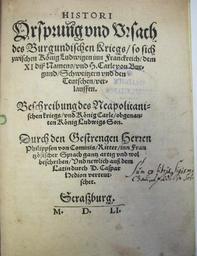 HISTORI
Orsprung vnd Vrsach
des Burgundischen Kriegs / so sich
zwischen König Ludwigen inn Franckreich / dem
XI diß Namens / vnd H. Carle von Bur-
gund / Schweitzern vnd den
Teutschen / ver-
lauffen.
Beschreibung des Neapolitani-
schen kriegs / vnd König Carle / obgenan-
ten König Ludwigs Son.
Durch den Gestrengen Herren
Philippsen von Cominis / Ritter / inn Fran
tzösischer Sprach gantz artig vnd wol
beschriben / Vnd newlich auß dem
Latin durch D. Caspar
Hedion verteut-
schet.
Straßburg.
M. D. LI.